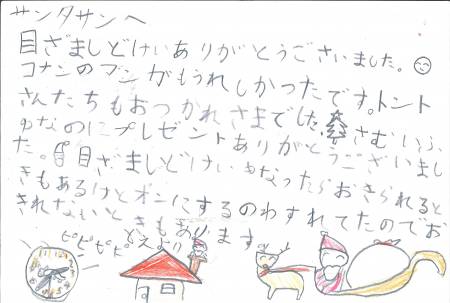 サンタサンへ
目ざましどけいありがとうございました。
コナンのマンガもうれしかったです。トント
さんたちもおつかれさまでした さむいふ
ゆなのにプレゼントありがとうございまし
た。目ざましどけい なったらおきられると
きもあるけどオンにするのわすれてたのでお
きれないときもあります
ピピピピ
どえより